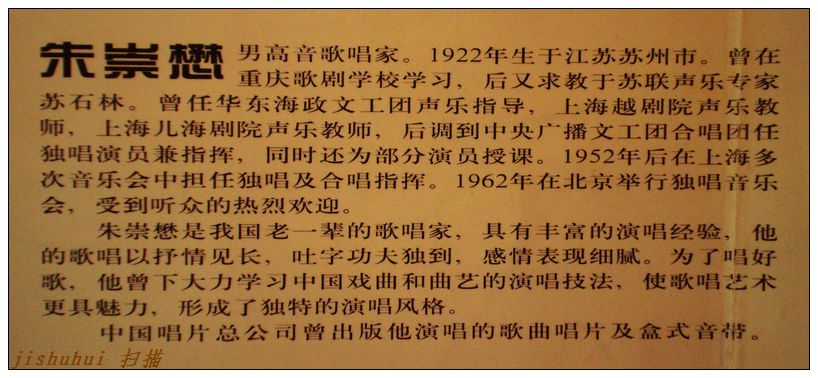 朱崇懋 男高音歌唱家。1922年生于江苏苏州市。曾在
重庆歌剧学校学习，后又求教于苏联声乐专家
苏石林。曾任华东海政文工团声乐指导，上海越剧院声乐教
师，上海儿海剧院声乐教师，后调到中央广播文工团合唱团任
独唱演员兼指挥，同时还为部分演员授课。1952年后在上海多
次音乐会中担任独唱及合唱指挥。1962年在北京举行独唱音乐
会，受到听众的热烈欢迎。
朱崇懋是我国老一辈的歌唱家，具有丰富的演唱经验，他
的歌唱以抒情见长，吐字功夫独到，感情表现细腻。为了唱好
歌，他曾下大力学习中国戏曲和曲艺的演唱技法，使歌唱艺术
更具魅力，形成了独特的演唱风格。
中国唱片总公司曾出版他演唱的歌曲唱片及盒式音带。
jishuhui 扫描